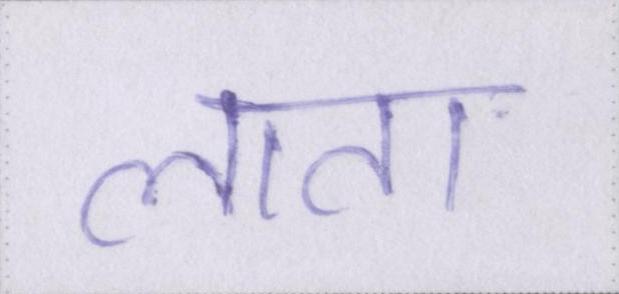 लाता